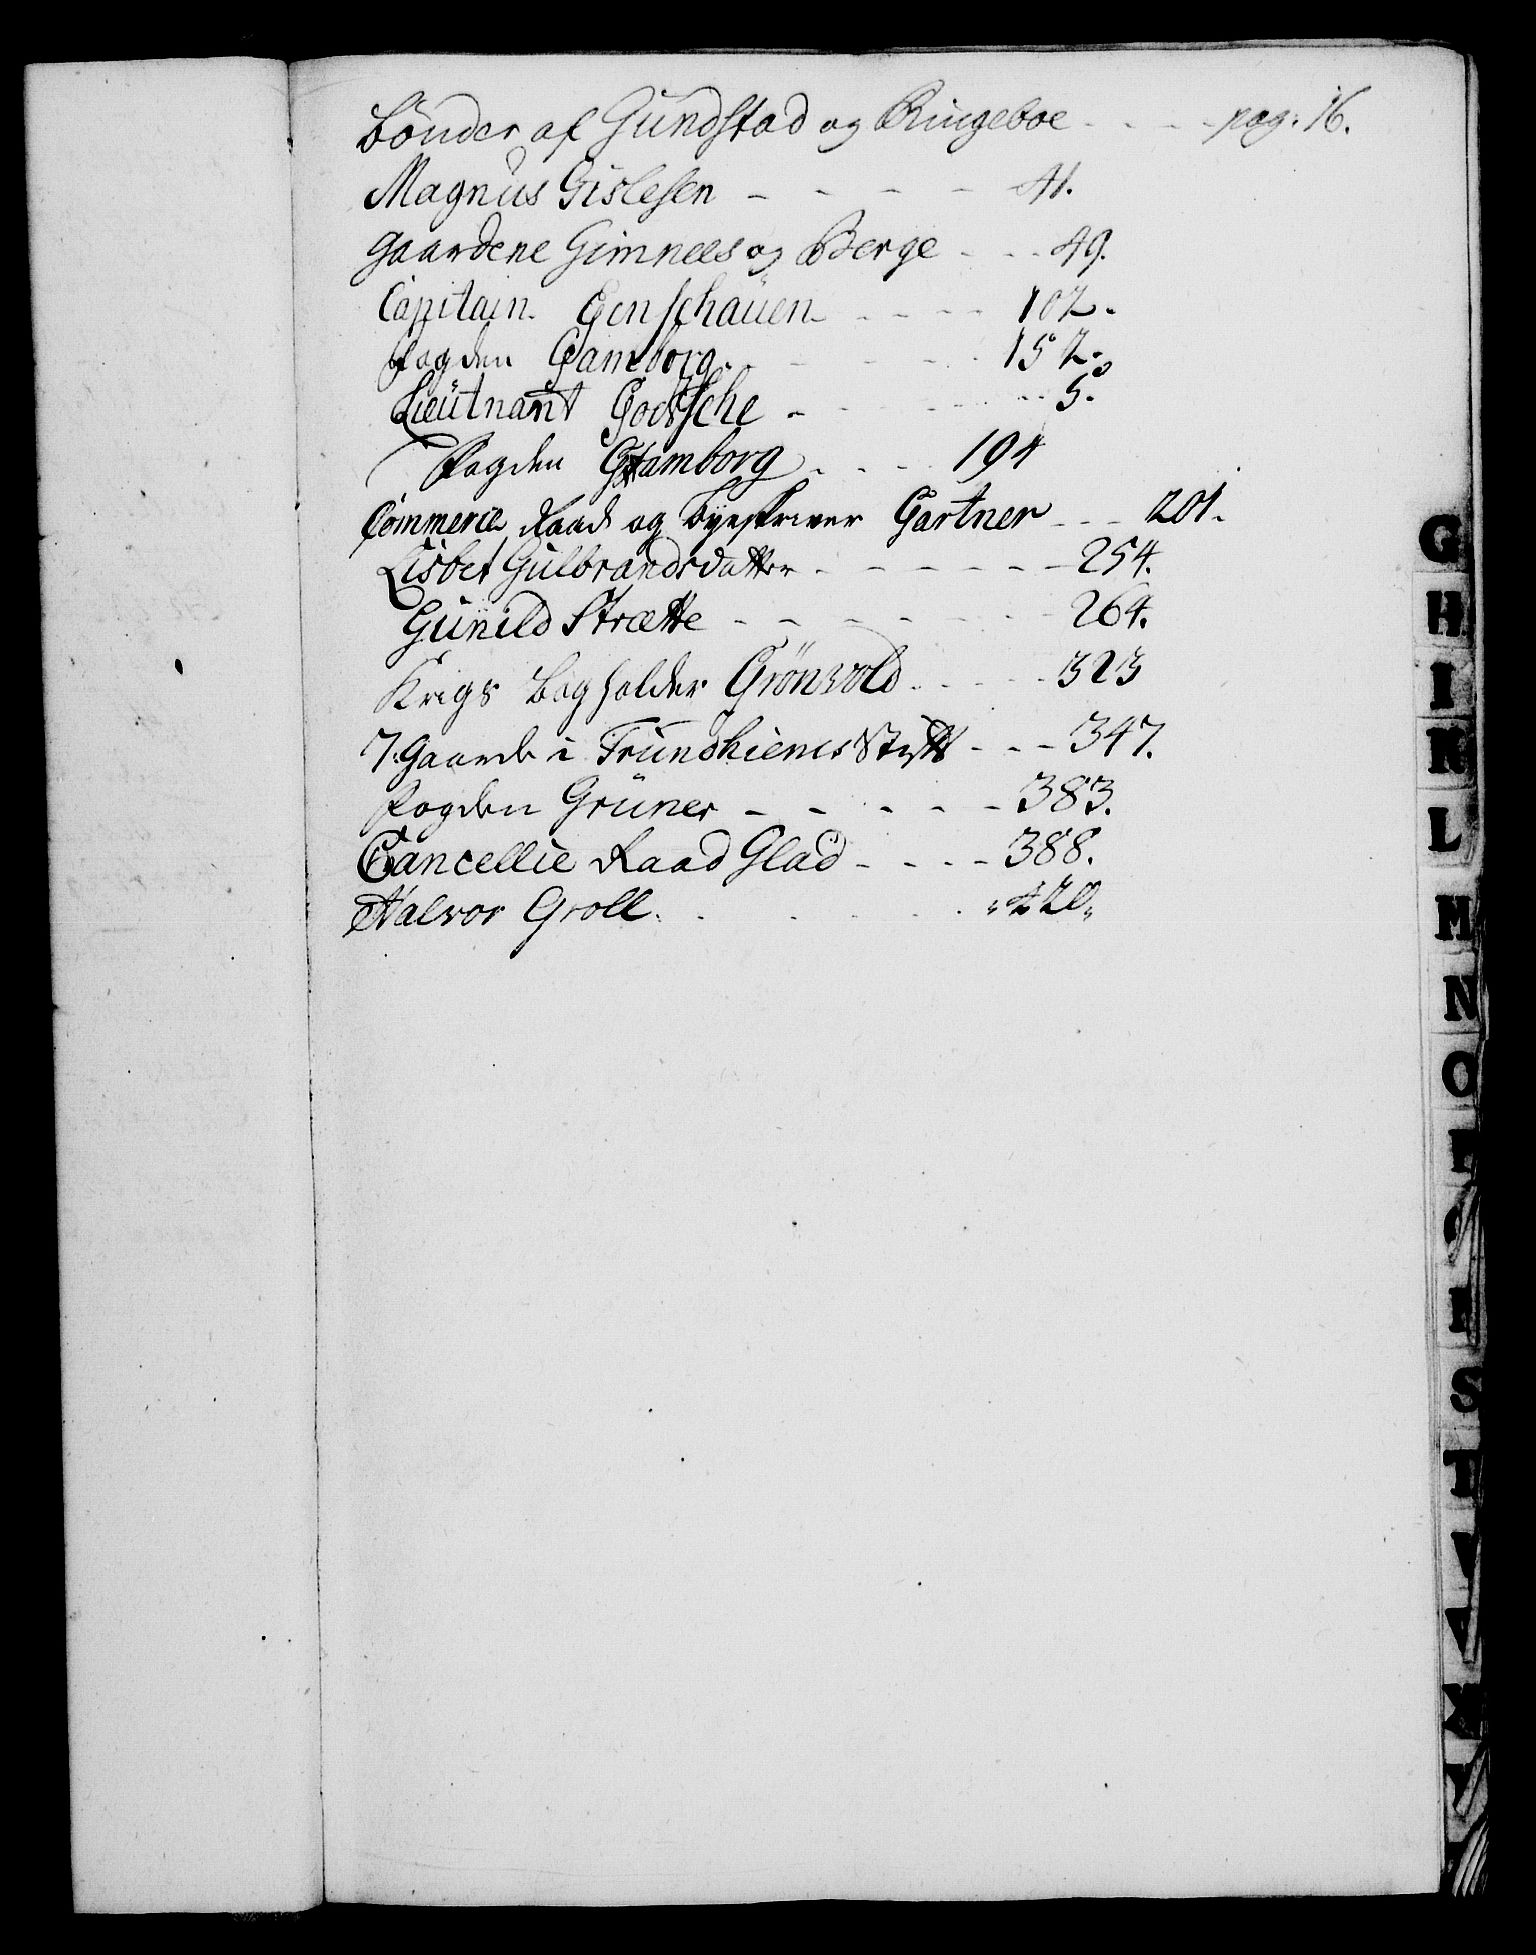 Bönder af Gundstad og Ringeboe - - - - pag: 16.
Magnus Gislesen - - - - - 41.
Gaardene Gimnees og Berge - - - 49.
Capitain Genschaüen - - - - 102.
Fogden Gamborg - - - 152.
Lieutnant Godtsche - - - - 5.
Fogden Gamborg - - - 194
Commerce Raad og Byeskriver Gartner - - - 201.
Lisbet Gulbrandsdatter - - - - - - 254.
Gunild Strætte - - - - - - 264.
Krigs Bogholder Grönvold - - - - 323
7. Gaarde i Trundhiems Stift - - - 347.
Fogden Grüner - - - - - 383.
Cancellie Raad Glad - - - - 388.
Halvor Groll. - - - - „420„
G
H
I
K
L
M
N
O
P
Q
R
S
T
V
X
Y